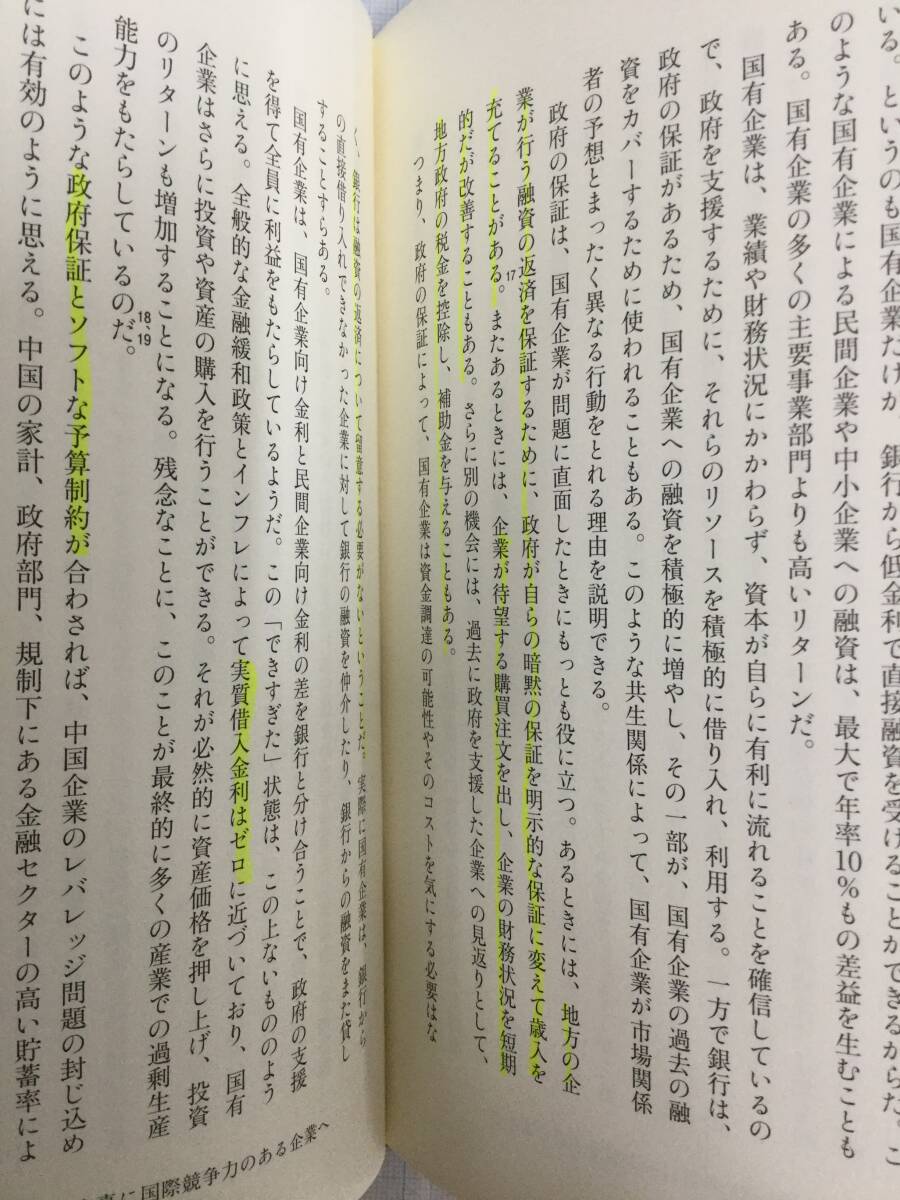 いる。というのも国有企業だけが、銀行から低金利で直接融資を受けることができるからだ。こ
のような国有企業による民間企業や中小企業への融資は、最大で年率10％もの差益を生むことも
ある。国有企業の多くの主要事業部門よりも高いリターンだ。
国有企業は、業績や財務状況にかかわらず、資本が自らに有利に流れることを確信しているの
で、政府を支援するために、それらのリソースを積極的に借り入れ、利用する。一方で銀行は、
政府の保証があるため、国有企業への融資を積極的に増やし、その一部が、国有企業の過去の融
資をカバーするために使われることもある。このような共生関係によって、国有企業が市場関係
者の予想とまったく異なる行動をとれる理由を説明できる。
政府の保証は、国有企業が問題に直面したときにもっとも役に立つ。あるときには、地方の企
業が行う融資の返済を保証するために、政府が自らの暗黙の保証を明示的な保証に変えて歳入を
充てることがある。17またあるときには、企業が待望する購買注文を出し、企業の財務状況を短期
的だが改善することもある。さらに別の機会には、過去に政府を支援した企業への見返りとして、
地方政府の税金を控除し、補助金を与えることもある。
つまり、政府の保証によって、国有企業は資金調達の可能性やそのコストを気にする必要はな
く、銀行は融資の返済について留意する必要がないということだ。実際に国有企業は、銀行から
の直接借り入れできなかった企業に対して銀行の融資を仲介したり、銀行からの融資をまた貸し
することすらある。
国有企業は、国有企業向け金利と民間企業向け金利の差を銀行と分け合うことで、政府の支援
を得て全員に利益をもたらしているようだ。この「できすぎた」状態は、この上ないもののよう
に思える。全般的な金融緩和政策とインフレによって実質借入金利はゼロに近づいており、国有
企業はさらに投資や資産の購入を行うことができる。それが必然的に資産価格を押し上げ、投資
のリターンも増加することになる。残念なことに、このことが最終的に多くの産業での過剰生産
能力をもたらしているのだ。18、19
このような政府保証とソフトな予算制約が合わされば、中国企業のレバレッジ問題の封じ込め
には有効のように思える。中国の家計、政府部門、規制下にある金融セクターの高い貯蓄率によ
に国際競争力のある企業へ